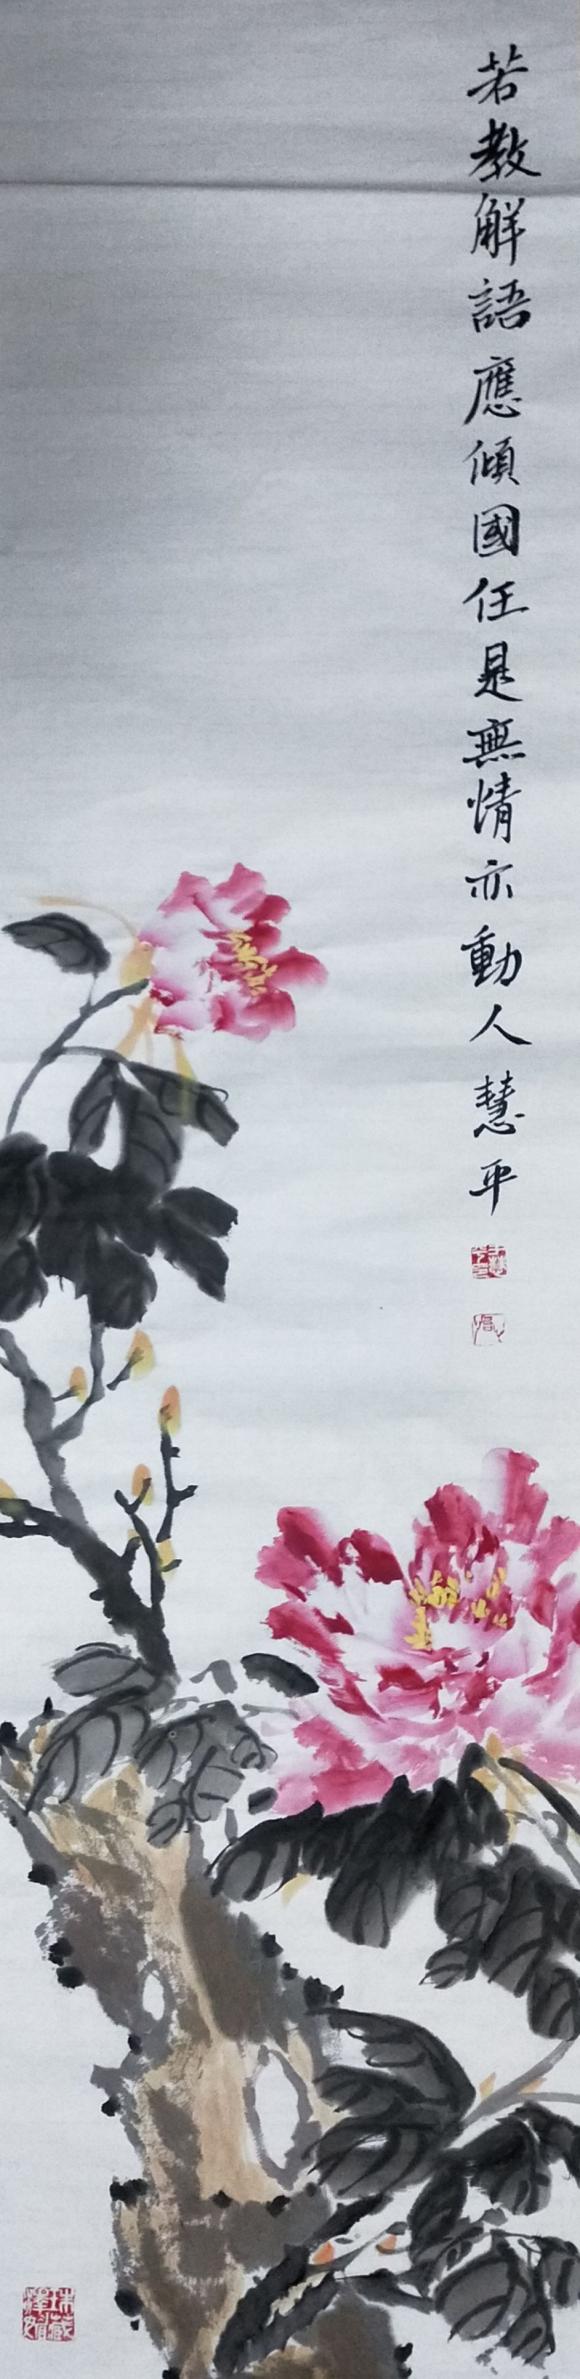 若教解語應傾國任是無情亦動人慧平